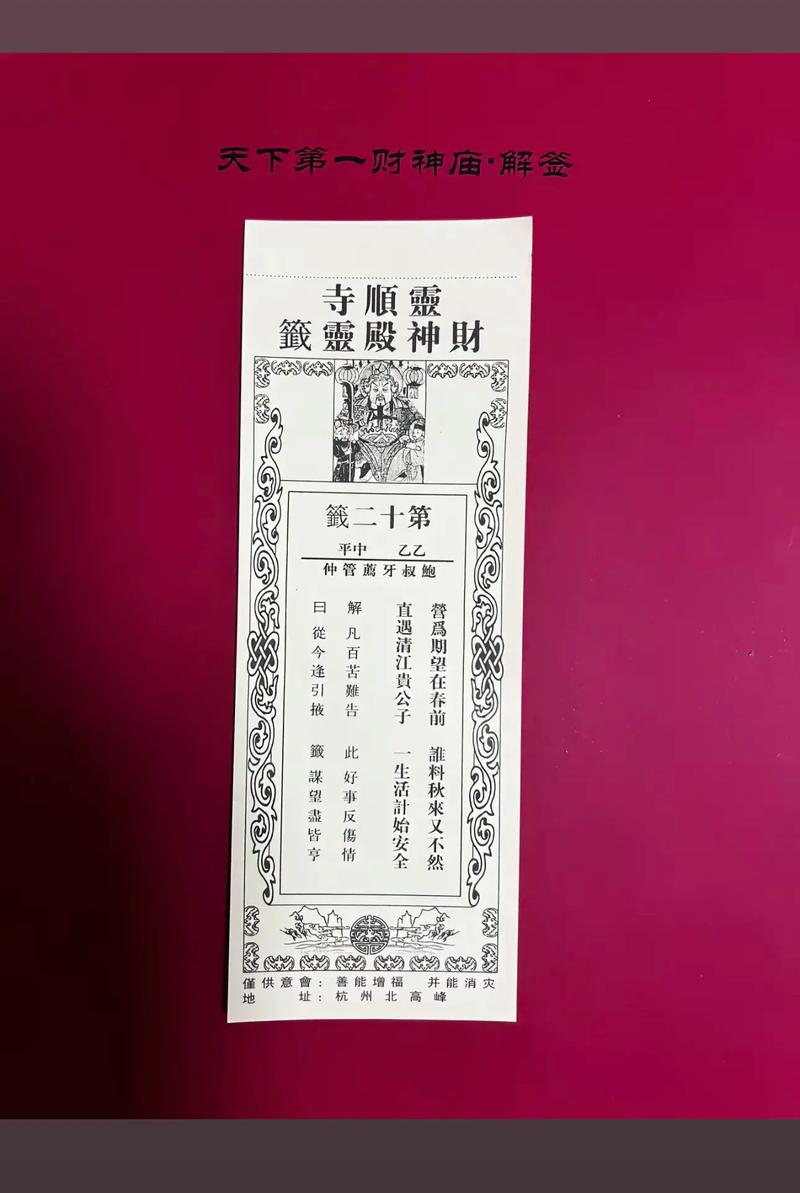 天下第一财神庙·解签
靈順寺
財神殿靈籤
第十二籤
乙乙 中平
鮑叔牙薦管仲
營爲期望在春前 誰料秋來又不然
直遇清江貴公子 一生活計始安全
解 凡百苦難告 此 好事反傷情
曰 從今逢引掖 籤 謀望盡皆亨
僅供意會：善能增福 并能消灾
地址：杭州北高峰